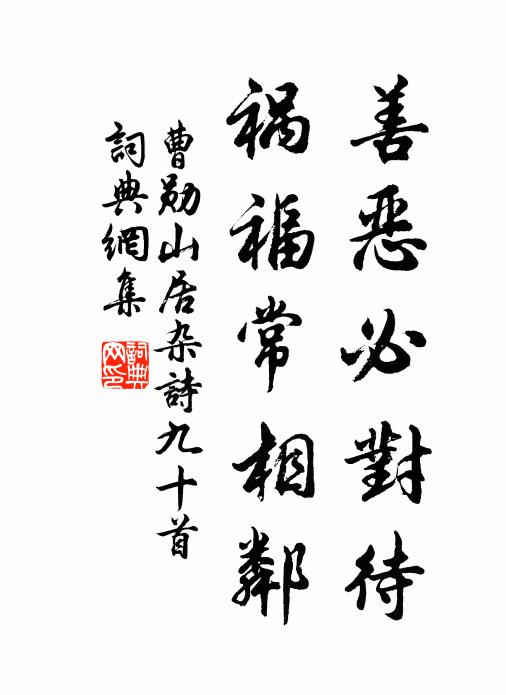 善惡必對待
禍福常相鄰
曹勛山居杂詩九十首
詞典網集
詞典網印